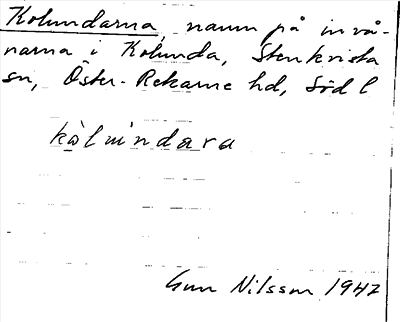 Kolundarna, namn på invå-
narna i Kolunda, Stenkvista
sn, Öster-Rekarne hd, Södl
kòlùndara
Gun Nilsson 1947